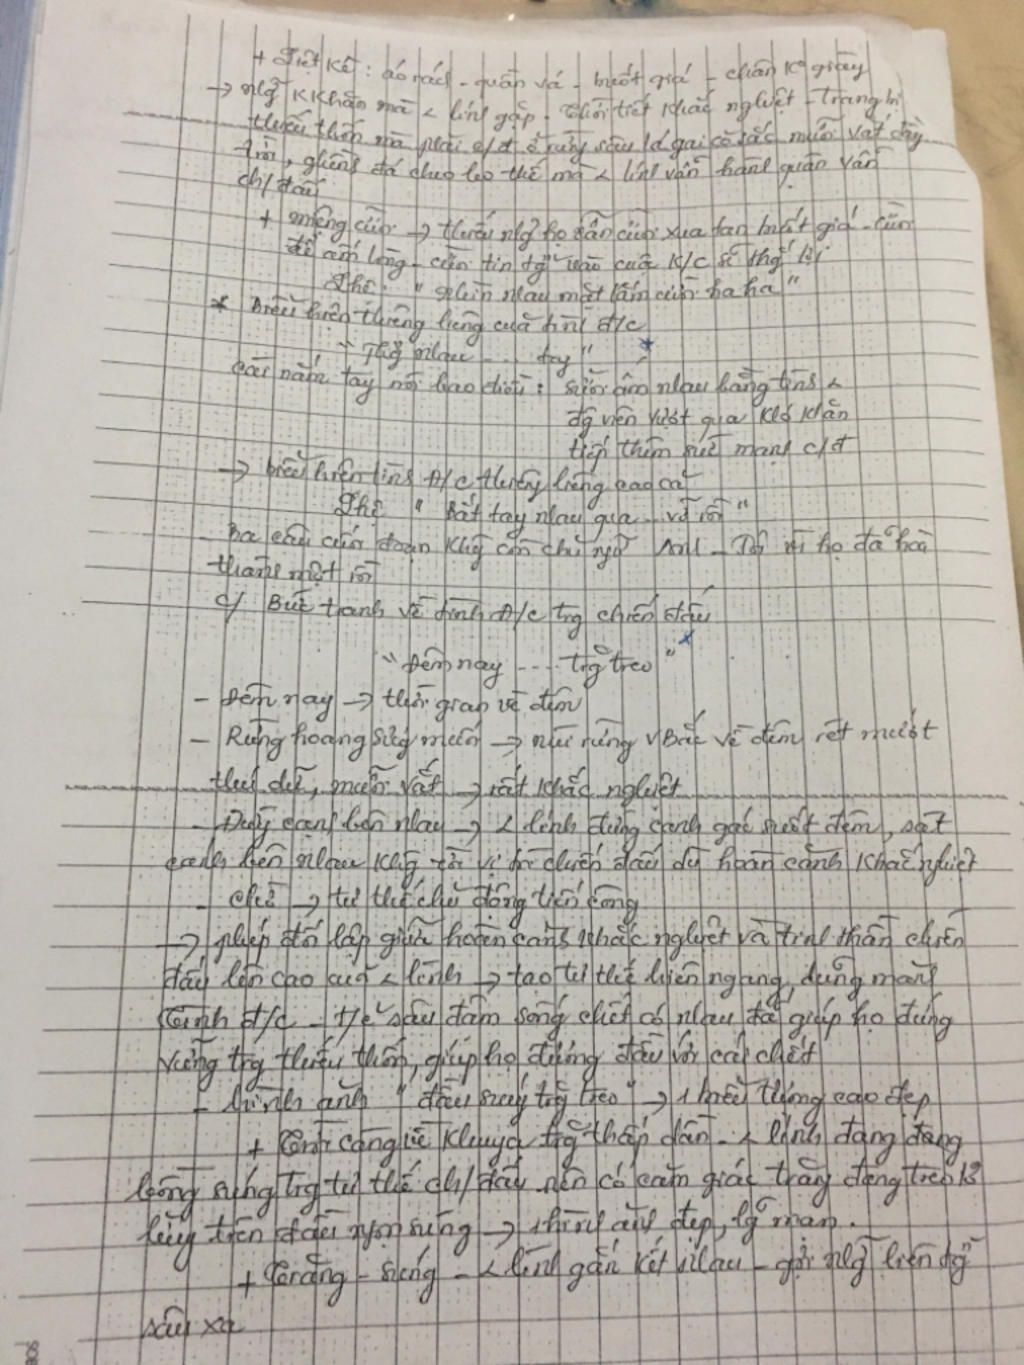 + Liệt kê: áo rách - quần vá - buốt giá - chân k° giày
→ nhg~ k khăn mà < lính gặp - thời tiết khắc nghiệt - trang bị
thiếu thốn mà phải c/đ ở rừng sâu lá gai cò sắc muỗi vắt đầy
trời, ghềnh đá cheo leo thế mà < lính vẫn hành quân vẫn
ch/đấu
+ miệng cười → thiếu nhg họ vẫn cười xua tan buốt giá - cười
để ấm lòng - cười tin tg° vào cuộc k/c sẽ thg lợi
Thơ: " nhìn nhau mặt lấm cười ha ha "
* Biểu hiện thiêng liêng của tình đ/c
" Thg nhau .... tay "
Cái nắm tay nói bao điều: sưởi ấm nhau bằng tình <
đg viên vượt qua khó khăn
tiếp thêm sức mạnh c/đ
→ biểu hiện tình đ/c thiêng liêng cao cả
Thơ " Bắt tay nhau qua .. vỡ rồi "
- Ba câu cuối đoạn khg còn chủ ngữ Anh - Tôi vì họ đã hoà
thành một rồi
c/ Bức tranh về tình đ/c trg chiến đấu
" Đêm nay .... trg treo "
- Đêm nay → thời gian về đêm
- Rừng hoang sương muối → núi rừng VBắc về đêm rét mướt
thú dữ, muỗi vắt → rất khắc nghiệt
- Đứng cạnh bên nhau → < lính đứng canh gác suốt đêm, sát
cạnh bên nhau khg rời vị trí chiến đấu dù hoàn cảnh khắc nghiệt
- chờ → tư thế chủ động tiến công
→ phép đối lập giữa hoàn cảnh khắc nghiệt và tinh thần chiến
đấu lên cao của < lính → tạo tư thế hiên ngang, dũng mãnh
Tình đ/c - t/c sâu đậm sống chết có nhau đã giúp họ đứng
vững trg thiếu thốn, giúp họ đương đầu với cái chết
- hình ảnh " đầu súng trg treo " → 1 biểu tượng cao đẹp
+ Trời càng về khuya trg thấp dần - < lính đang đang
bồng súng trg tư thế ch/đấu nên có cảm giác trăng đang treo lơ
lửng trên đầu ngọn súng → 1 hình ảnh đẹp, lg~ mạn.
+ Trăng - súng - < lính gắn kết nhau - gợi nhg~ liên tg°
sâu xa